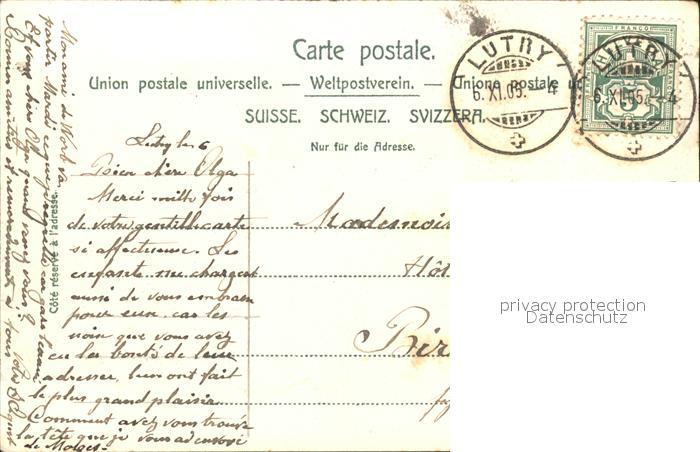 Carte postale.
Union postale universelle. — Weltpostverein. — Unione postale
SUISSE. SCHWEIZ. SVIZZERA.
Nur für die Adresse.
Côté réservé à l'adresse.
FRANCO
LUTRY
6.XI.05. - 4
LUTRY
6.XI.05. - 4
Lutry le 6
Bien chère Olga
Merci mille fois
de votre gentille carte
si affectueuse. Les
enfants me chargent
aussi de vous embrasser
pour eux, car les
noix que vous avez
eu la bonté de leur
adresser, leur ont fait
le plus grand plaisir.
Comment avez vous trouvé
la tête que je vous ai envoyé
de Morges
Mademois
Hôt
Bir
Mon ami de Worb va
partir Mardi
Et vous chère Olga quand venez vous?
Bonnes amitiés et
privacy protection
Datenschutz